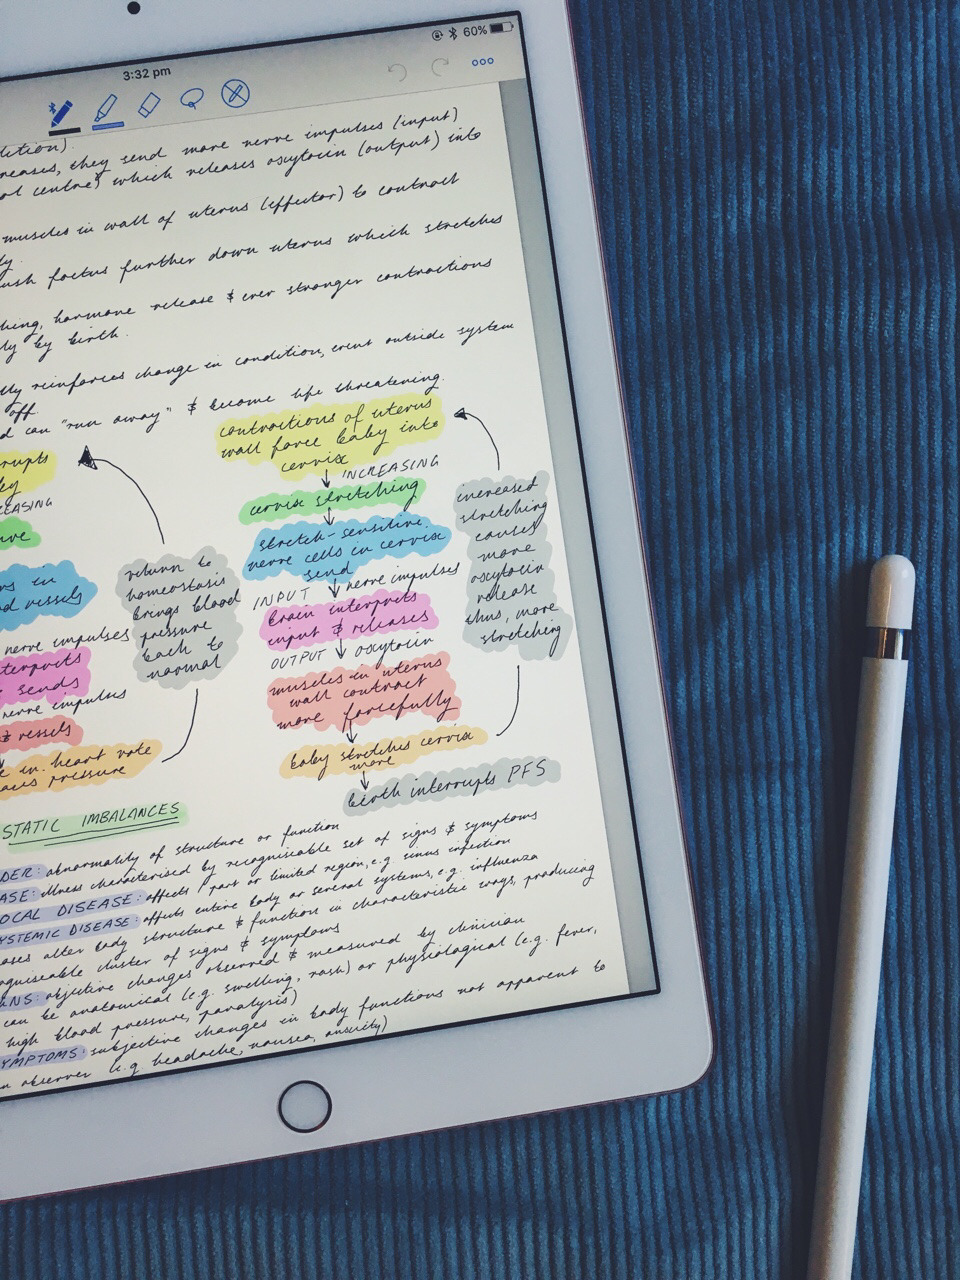 3:32 pm
60%
dition).
reases, they send more nerve impulses (input)
ol centre) which releases oxytocin (output) into
muscles in wall of uterus (effector) to contract
ly.
ush foetus further down uterus which stretches
hing, hormone release & ever stronger contractions
ly by birth.
lly reinforces change in condition, event outside system
off.
d can "run away" & become life threatening.
rupts
ey
EASING
ure
rs in
d vessels
nerve impulses
terprets
& sends
nerve impulses
& vessels
e in heart rate
pressure
return to
homeostasis
brings blood
pressure
back to
normal
contractions of uterus
wall force baby into
cervix
INCREASING
cervix stretching
stretch-sensitive
nerve cells in cervix
send
INPUT nerve impulses
brain interprets
input & releases
OUTPUT oxytocin
muscles in uterus
wall contract
more forcefully
baby stretches cervix
more
birth interrupts PFS
increased
stretching
causes
more
oxytocin
release
thus, more
stretching
STATIC IMBALANCES
DER: abnormality of structure or function
ASE: illness characterised by recognisable set of signs & symptoms
OCAL DISEASE: affects 1 part or limited region, e.g. sinus infection
YSTEMIC DISEASE: affects entire body or several systems, e.g. influenza
ases alter body structure & function in characteristic ways, producing
ogniseable cluster of signs & symptoms
GNS: objective changes observed & measured by clinician
can be anatomical (e.g. swelling, rash) or physiological (e.g. fever,
high blood pressure, paralysis)
YMPTOMS: subjective changes in body functions not apparent to
n observer (e.g. headache, nausea, anxiety)